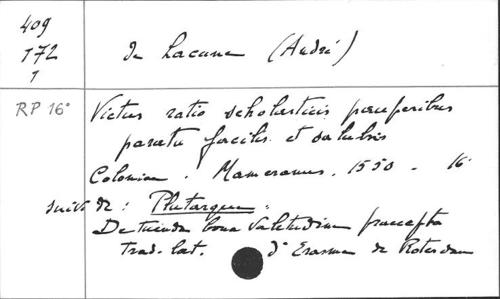 409
172
1
de Lacuna (André)
RP 16°
Victus ratio scholasticis pauperibus
paratu facilis et salubris
Coloniae. Mameranus. 1550 - 16°
suivi de : Plutarque.
De tuenda bona valetudine praecepta
trad. lat. d'Erasme de Roterdam